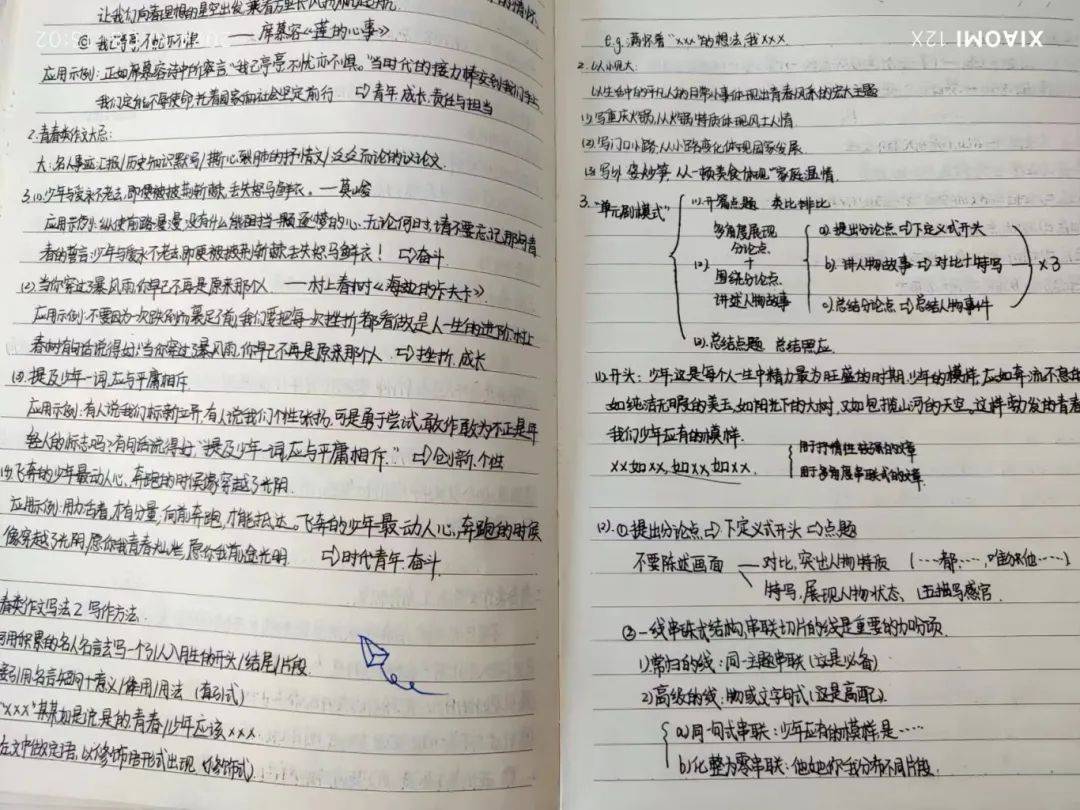 让我们向着理想的星空出发,乘着万里长风勇
① 我已亭亭不忧亦不惧 ——席慕容《莲的心事》
应用示例:正如席慕容诗中所寄言"我已亭亭,不忧亦不惧。"当时代的接力棒交到我们手
我们定能不辱使命,托着国家和社会坚定前行 ⇒青年.成长.责任与担当
2.青春类作文大忌:
大:名人事迹汇报/历史知识默写/撕心裂肺的抒情文/泛泛而论的议论文.
3.(1)少年与爱永不老去,即便披荆斩棘,丢失怒马鲜衣。——莫峻
应用示例:纵使前路漫漫,没有什么能阻挡一颗逐梦的心,无论何时,请不要忘记那句青
春的誓言:少年与爱永不老去,即便披荆斩棘丢失怒马鲜衣! ⇒奋斗
(2)当你穿过了暴风雨,你早已不再是原来那个人. ——村上春树《海边的卡夫卡》
应用示例:不要因为一次跌倒而裹足不前,我们要把每一次挫折都看做是人生的进阶,村上
春树有句话说得好:当你穿过了暴风雨,你早已不再是原来那个人 ⇒挫折.成长
(3)提及少年一词,应与平庸相斥.
应用示例:有人说我们标新立异,有人说我们个性张扬,可是勇于尝试,敢作敢为不正是年
轻人的标志吗?有句话说得好:"提及少年一词,应与平庸相斥." ⇒创新.个性
飞奔的少年最动人心,奔跑的时候像穿越了光阴.
应用示例:用力活着,才有分量,向前奔跑,才能抵达。飞奔的少年最动人心,奔跑的时候
像穿越了光阴,愿你我青春灿烂,愿你我前途光明 ⇒时代青年.奋斗.
春类作文写法2.写作方法.
可用积累的名人名言去写一个引人入胜的开头/结尾/片段.
引用名言短句+意义/作用/用法 (直引式)
"xxx"某某如是说,是的,青春/少年应该xxx
在文中做定语,以修饰语形式出现 (修饰式)
e.g.满怀着"xxx"的想法,我xxx.
2.以小见大:
以生活中的平凡人的日常小事体现出青春风采的宏大主题
(1)写重庆火锅,从火锅特质体现风土人情.
(2)写门口小路,从小路变化体现国家发展.
(3)写外婆炒笋,从一顿美食体现"家庭温情.
3."单元剧模式"
(1).开篇点题 类比排比
(2).多角度展现分论点+围绕分论点讲述人物故事
a).提出分论点⇒下定义式开头
b).讲人物故事⇒对比+特写
c)总结分论点⇒总结人物事件
×3
(3).总结点题 总结照应.
(1).开头:少年,这是每个人一生中精力最为旺盛的时期.少年的模样,应如奔流不息的
如纯洁无暇的美玉,如阳光下的大树,又如包揽山河的天空,这样勃发的青春
我们少年应有的模样.
xx如xx,如xx,如xx.
用于抒情性较强的文章
用于多角度串联式的文章.
(2).①提出分论点⇒下定义式开头⇒点题
不要陈述画面
对比,突出人物特质 (……都……,唯独他……)
特写,展现人物状态、(五描写感官.
②一线串珠式结构,串联切片的线是重要的加分项.
1)常归的线:同一主题串联(这是必备)
2)高级的线:物或文字句式(这是高配).
a)同一句式串联:少年应有的模样是……
b)化整为零串联:他她你我分布不同片段.
XIAOMI 12X